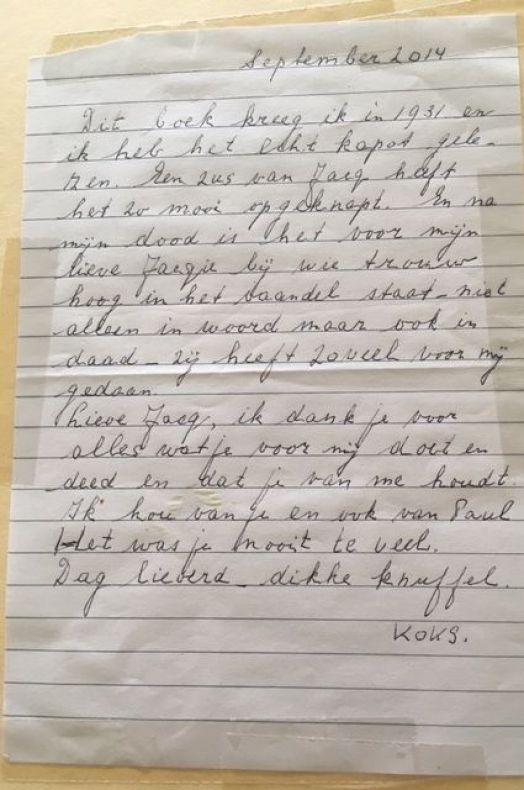 September 2014
Dit boek kreeg ik in 1931 en
ik heb het echt kapot gele-
zen. Een zus van Jacq heeft
het zo mooi opgeknapt. En na
mijn dood is het voor mijn
lieve Jacqie bij wie trouw
hoog in het vaandel staat - niet
alleen in woord maar ook in
daad - zij heeft zoveel voor mij
gedaan.
Lieve Jacq, ik dank je voor
alles wat je voor mij doet en
deed en dat je van me houdt.
Ik hou van je en ook van Paul
Het was je nooit te veel.
Dag lieverd - dikke knuffel.
KOKS.